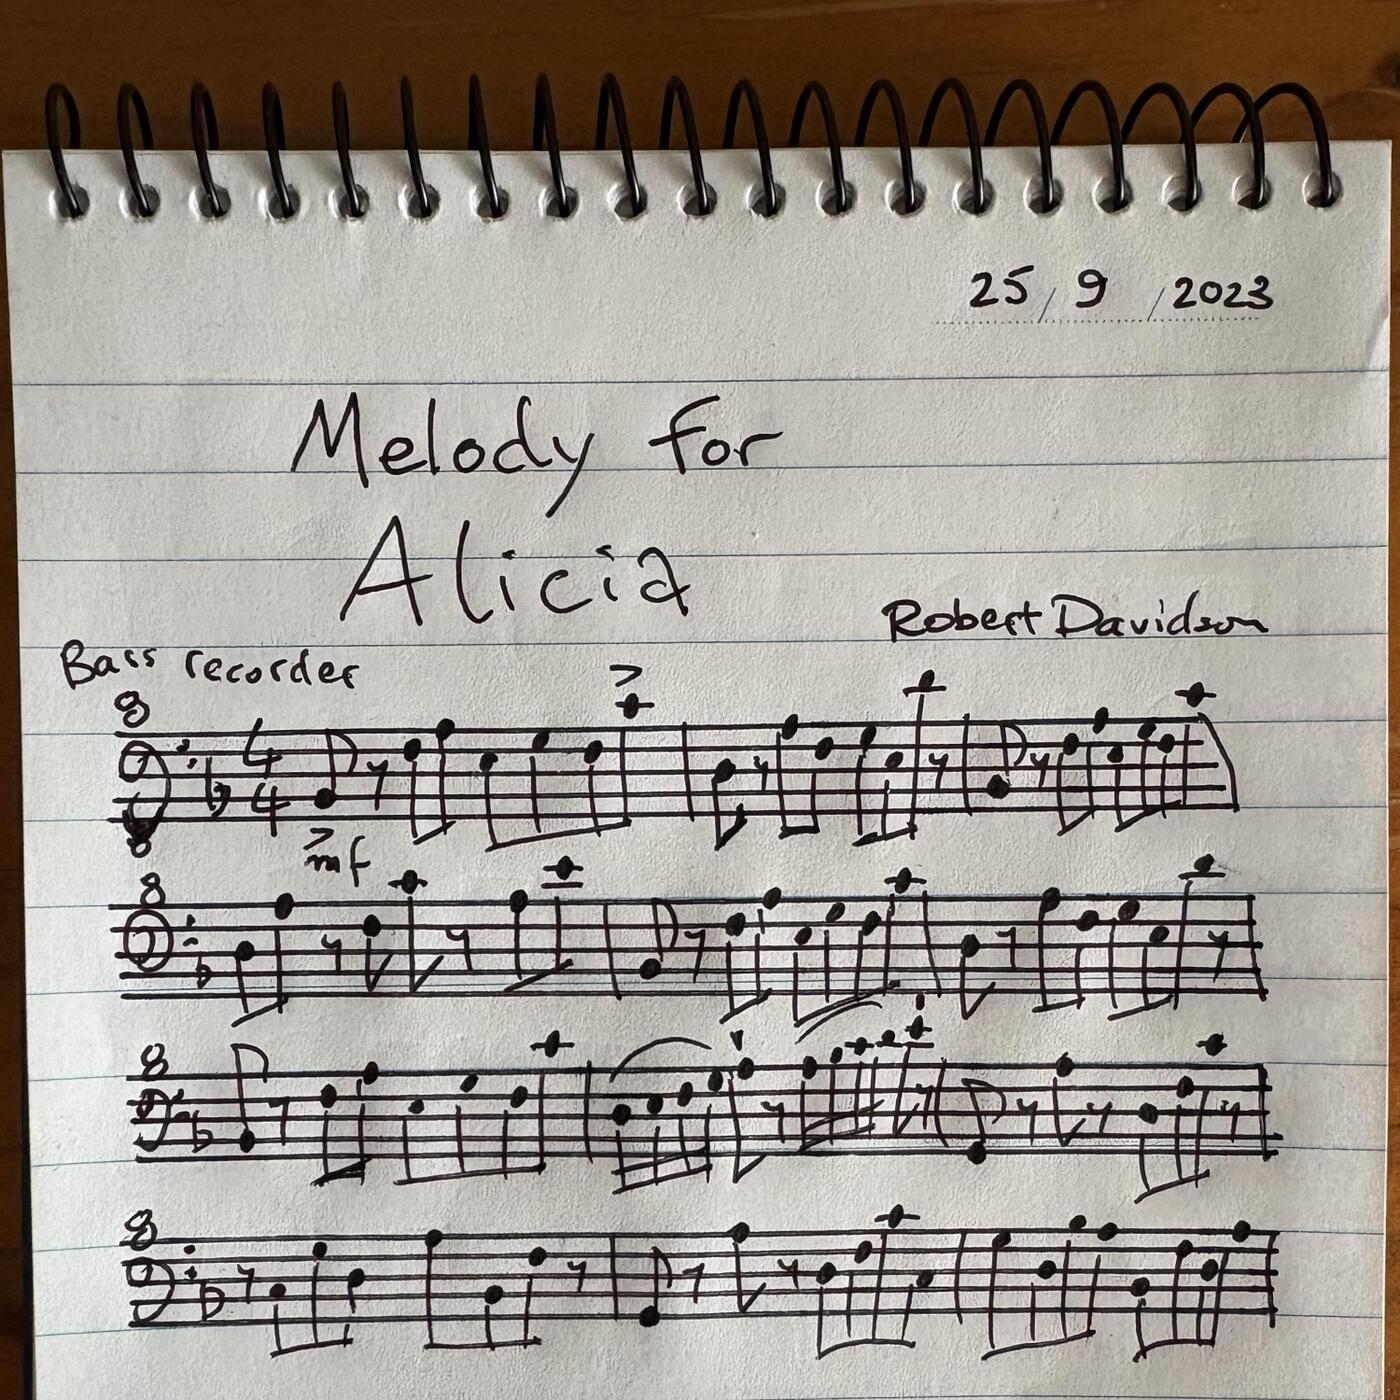 25 / 9 / 2023
Melody for
Alicia
Robert Davidson
Bass recorder
8
4
4
mf
8
8
8